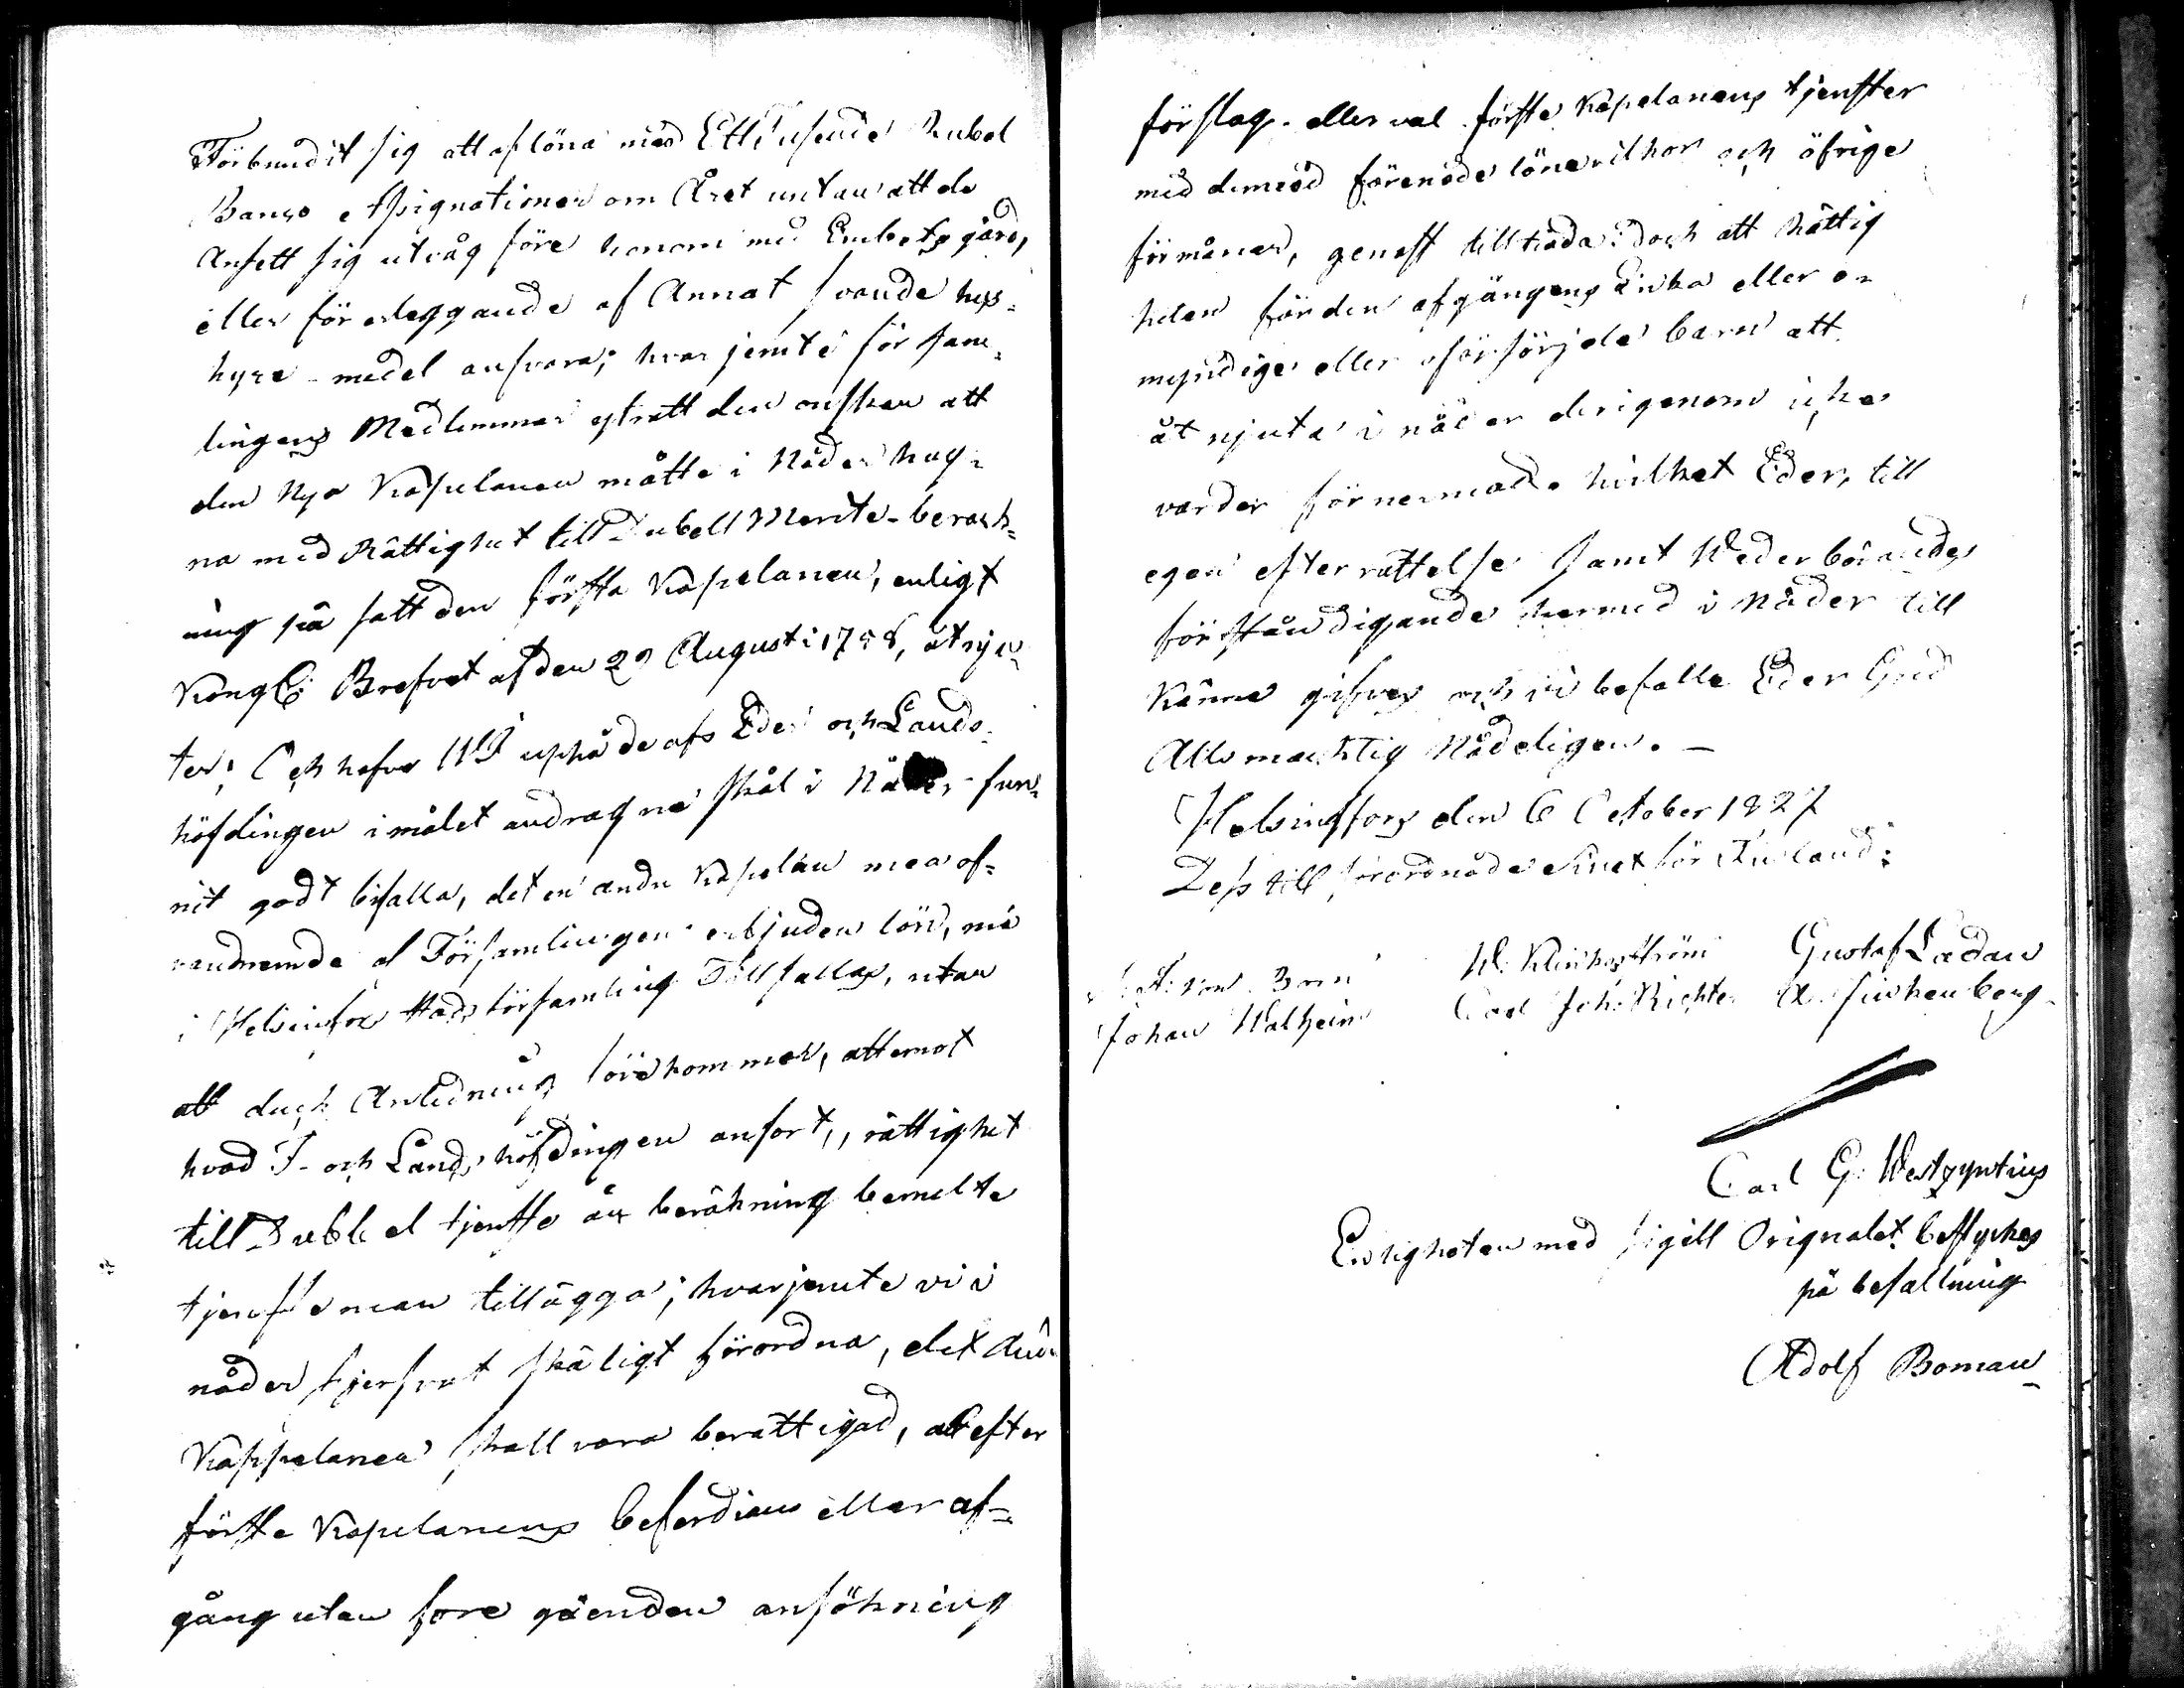 Förbundit sig att aflöna med Ett tusende Rubel
Banco Assignationer om Året untan att de
Ansett sig utväg före honom med Embets gård,
eller för erleggande af Annat svande hus-
hyre-medel ansvara; hvar jemte för sam-
lingens Medlemmar ytratt den onskan att
den Nya Kapelanen måtte i Nåder hug-
na med Rättighet till Dubell Merite-berach-
ning på satt den förste Kapelanen, enligt
Kongl: Brefvet af den 29 Augusti 17 8, åtnju-
ter; Och hafve WI uphå de afs Eder och Lands-
höfdingen i målet andragna skäl i Nåder fun-
nit godt bifalla, det en andre Kapelan mea of-
vannemde af Församlingen erbjuden lön, må
i Helsinfors Stads församling Tillsattas, utan
att dugh Anledning förekommer, attemot
hvad I- och Landshöfdingen anfort,, rättighet
till Dubbel tjenste års beräkning bemelte
tjensteman tillägga; hvarjemte vi i
nåder tjensvat skäligt förordna, det Andre
Kappelanen skall vara berättigad, at efter
förste Kapelanens befordran eller af-
gång utan fore gäenden ansökning
förslag- eller val förste Kapelanens tjenster
mid dermed förenade lönevilkor och öfrige
förmåner, genast tilltrada: doch att Rättig
heten för den afgångens Enka eller o-
myndige eller oförsörjde barn att
åt njuta i nåder derigenom icke
varder förnermade hvilket Eder, till
egen efterrättelse samt Wederbörandes
förständigande hermed i Nåder till
Känna gifves och vi befalle Eder Gud
Allsmachtig Nådeligen. —
Helsingfors den 6 October 1827
Dess till förordnade Senat för Finland:
von Born W: Klinkofström Gustaf Ladau
Johan Walheim Carl Joh: Richter A. Finkenberg
Carl G: Westzyntius
Enligheten med sigill Orignalet bestyrkes
på befallning
Adolf Boman